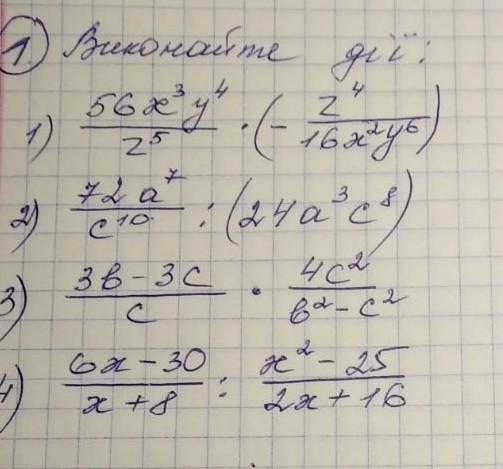 ① Виконайте дії:
1) 56x³y⁴/z⁵ · (− z⁴/16x²y⁶)
2) 72a⁷/c¹⁰ : (24a³c⁸)
3) 3b − 3c/c · 4c²/b² − c²
4) 6x − 30/x + 8 : x² − 25/2x + 16